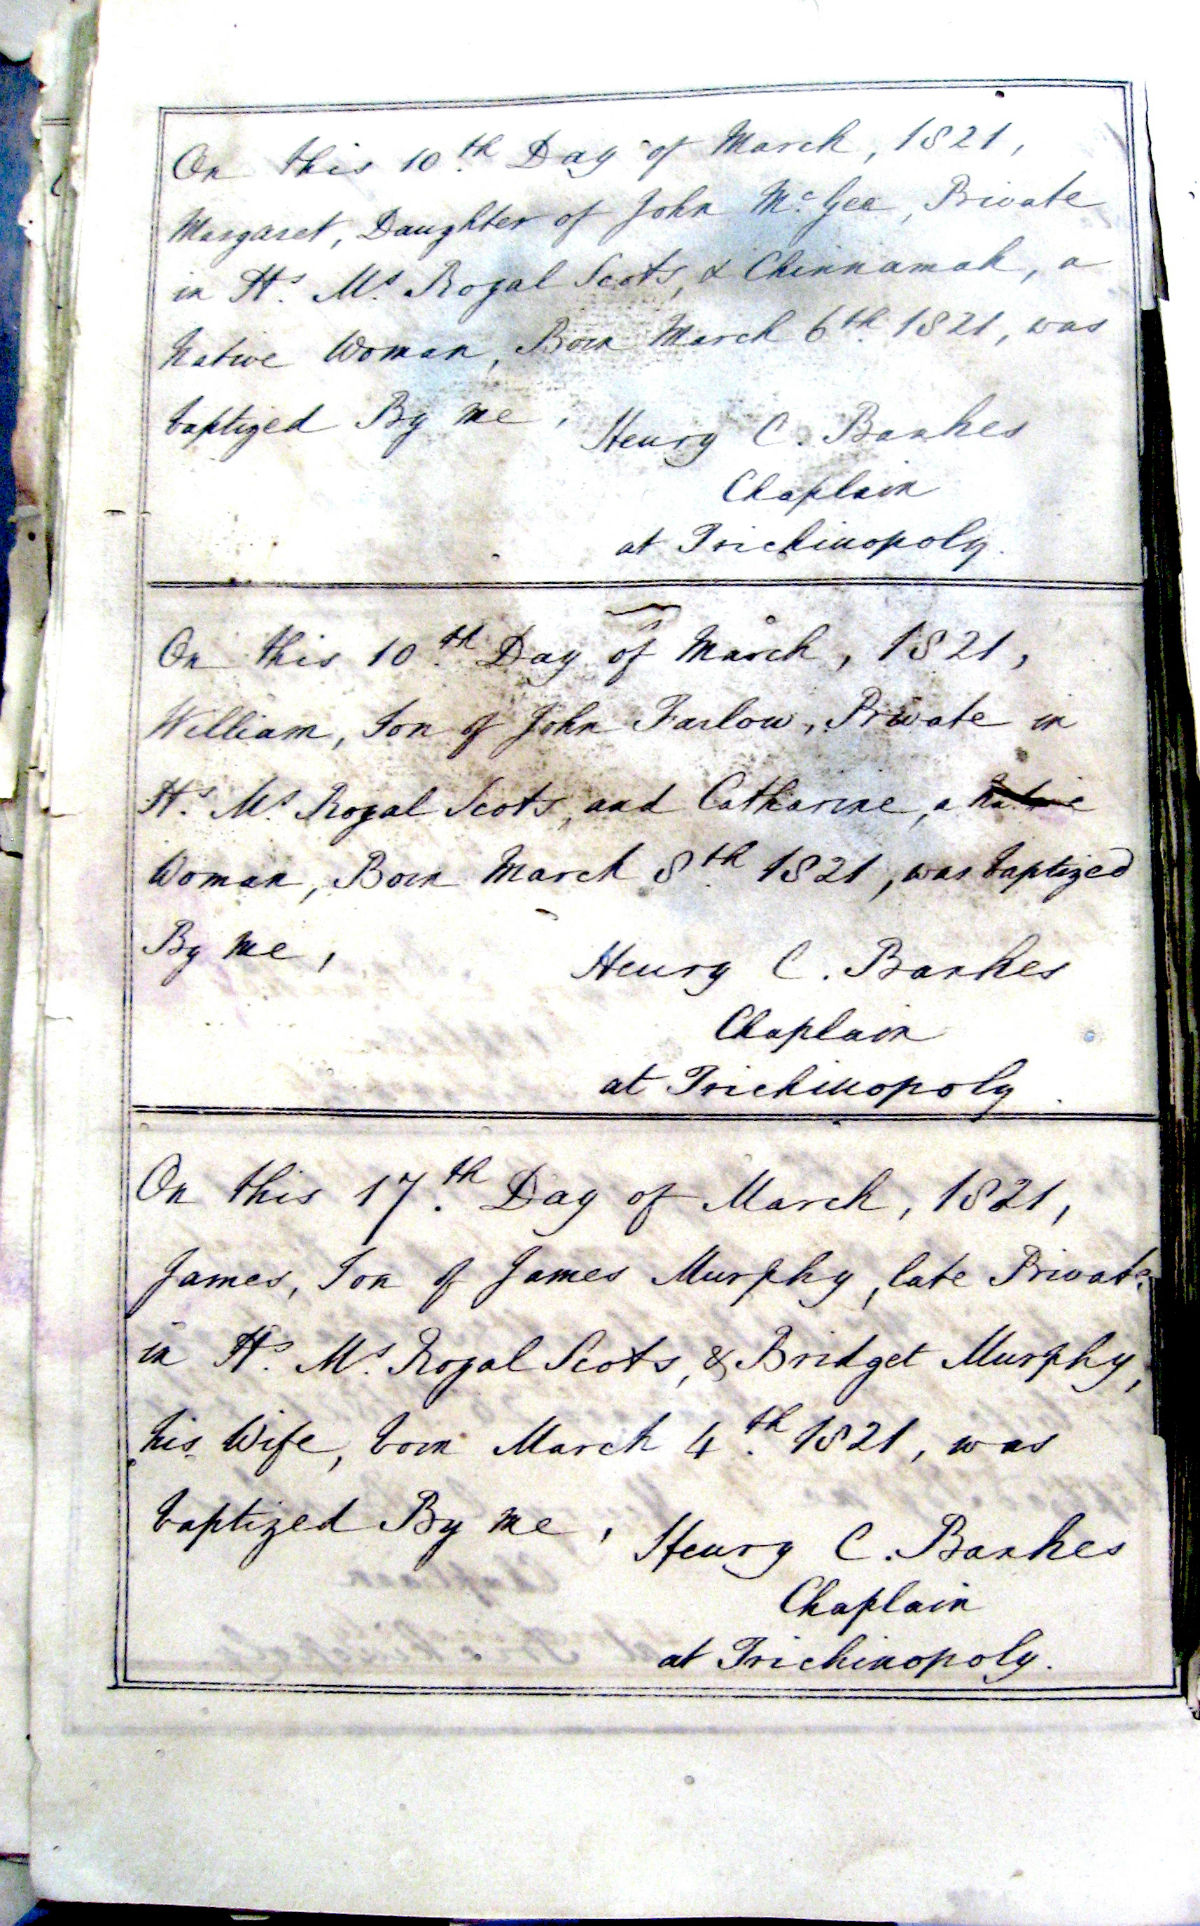 On this 10th Day of March, 1821,
Margaret, Daughter of John McGee, Private
in Hs. Ms. Royal Scots, & Chinnamah, a
Native Woman, Born March 6th 1821, was
baptized By me,
Henry C. Bankes
Chaplain
at Trichinopoly.
On this 10th Day of March, 1821,
William, Son of John Farlow, Private in
Hs. Ms. Royal Scots, and Catharine, a Native
Woman, Born March 8th 1821, was baptized
By me,
Henry C. Bankes
Chaplain
at Trichinopoly.
On this 17th Day of March, 1821,
James, Son of James Murphy, late Private
in Hs. Ms. Royal Scots, & Bridget Murphy,
his Wife, born March 4th 1821, was
baptized By me,
Henry C. Bankes
Chaplain
at Trichinopoly.